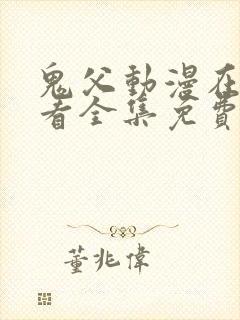 鬼父動漫在
看全集免費
董兆偉